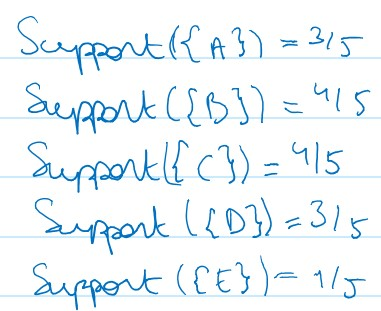 Support({A}) = 3/5
Support({B}) = 4/5
Support({C}) = 4/5
Support({D}) = 3/5
Support({E}) = 1/5